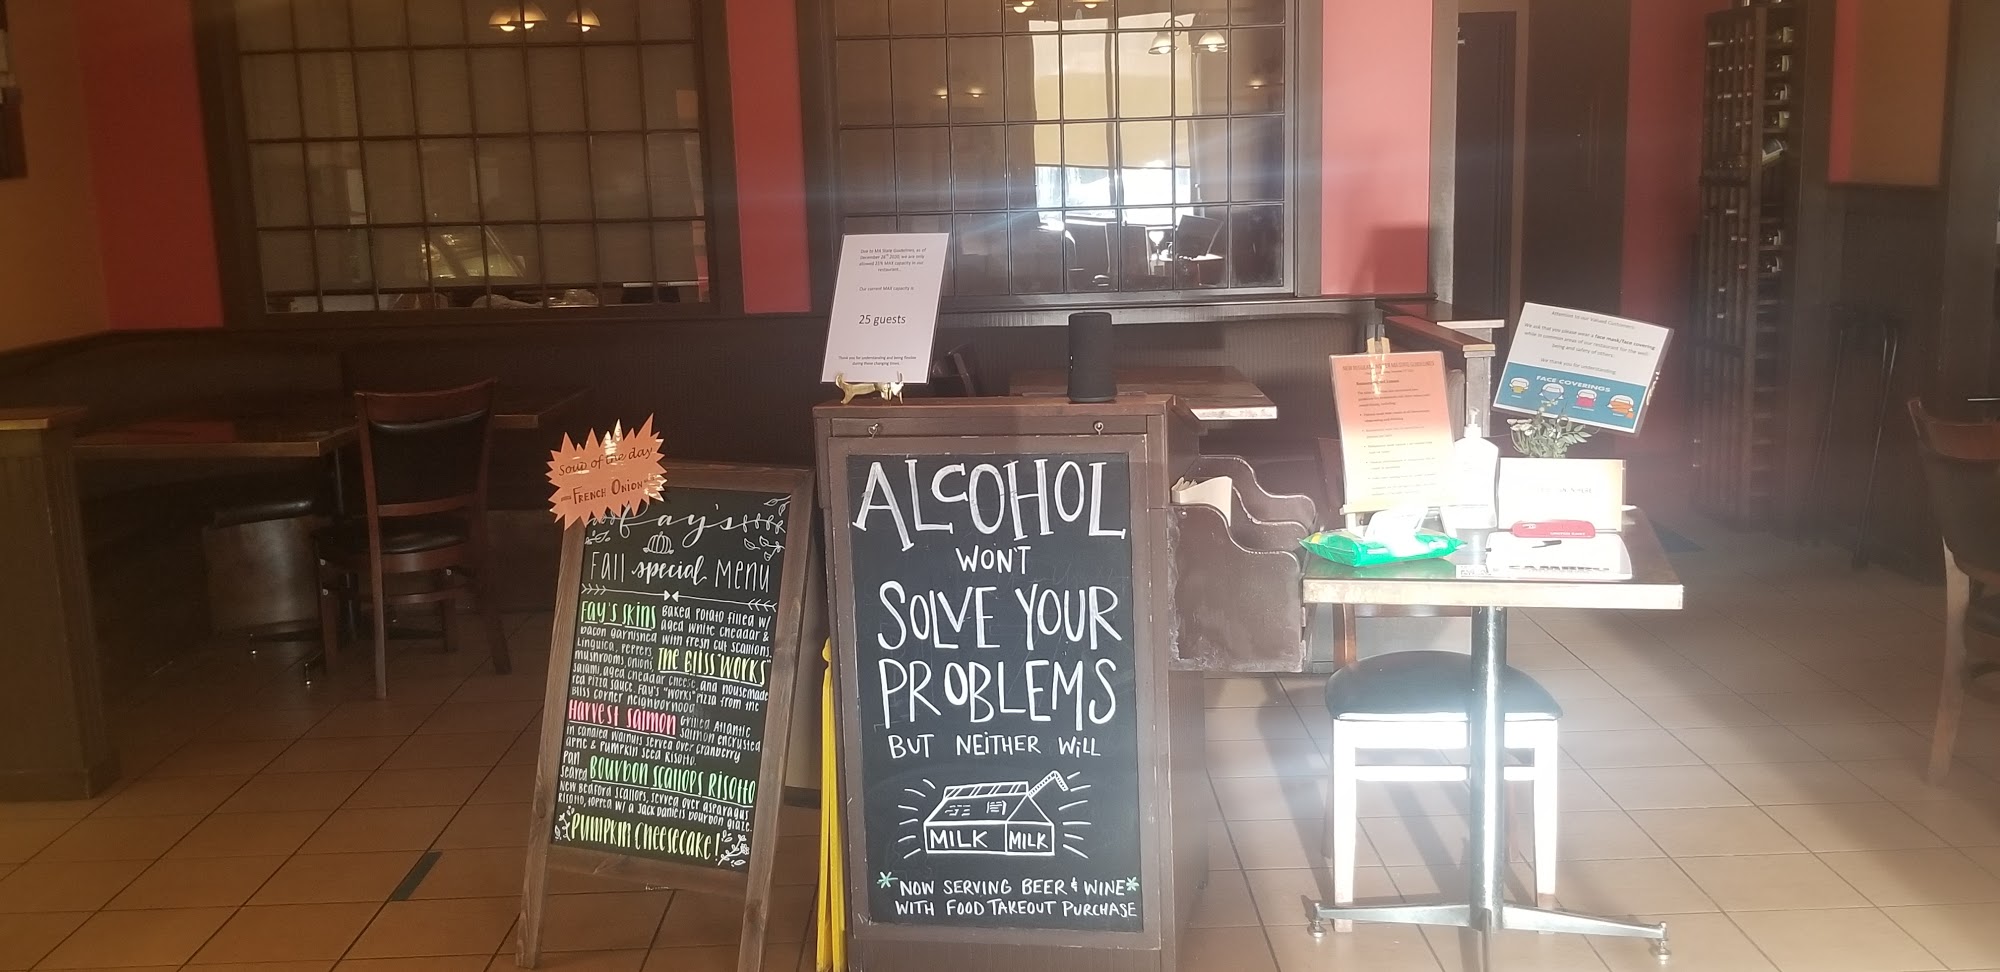 Due to MA State Guidelines, as of
December 26th 2020, we are only
allowed 25% MAX capacity in our
restaurant..
Our current MAX capacity is
25 guests
Thank you for understanding and being flexible
during these changing times
Soup of the day
French Onion
Fay's
Fall special Menu
Fay's Skins Baked Potato filled w/
aged white cheddar &
bacon garnished with fresh cut scallions.
Linguica, peppers, The Bliss "Works"
mushrooms, onions,
salami, aged cheddar cheese, and housemade
red pizza sauce. Fay's "works" pizza from the
Bliss corner neighborhood
Harvest Salmon Grilled Atlantic
salmon encrusted
in candied walnuts served over cranberry
apple & pumpkin seed risotto.
Pan
seared Bourbon Scallops Risotto
New Bedford scallops, served over asparagus
risotto, topped w/ a Jack Daniels bourbon glaze.
Pumpkin Cheesecake!
ALCOHOL
WON'T
SOLVE YOUR
PROBLEMS
BUT NEITHER WILL
MILK MILK
*NOW SERVING BEER & WINE*
WITH FOOD TAKEOUT PURCHASE
Attention to our Valued Customers:
We ask that you please wear a face mask/face covering
while in common areas of our restaurant for the well-
being and safety of others.
We thank you for understanding.
FACE COVERINGS